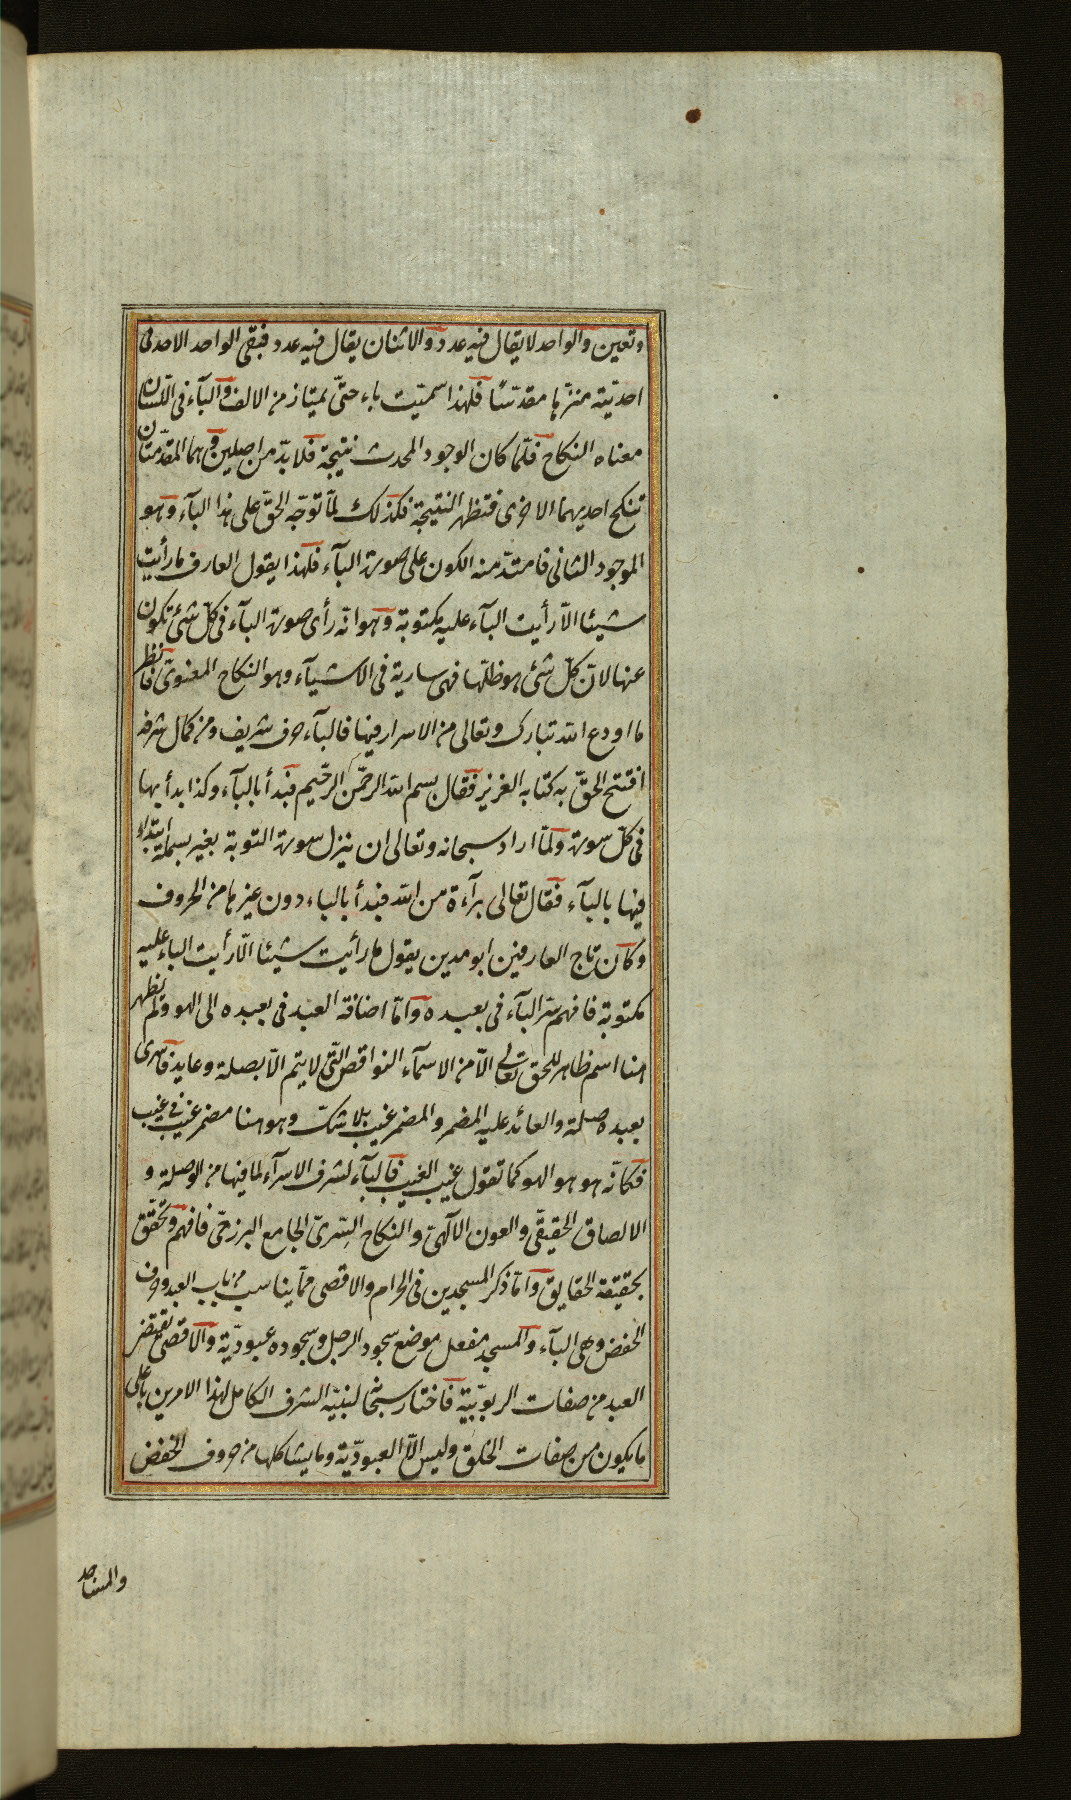 وتعين والواحد لا يقال فيه عدد والاثنان يقال فيه عدد فبقى الواحد الاحد فى
احديّته منزّها مقدّسًا فلهذا سمّيت باء حتّى يمتاز من الالف والبآء فى اللّسان
معناه النكاح فلمّا كان الوجود المحدث نتيجة فلا بدّ من اصلين وهما المقدّمتان
تنكح احديهما الاخرى فتظهر النتيجة فكذلك لمّا توجّه الحقّ على هذا البآء وهو
الموجود الثانى فامتدّ منه الكون على صورة البآء فلهذا يقول العارف ما رأيت
شيئا الاّ رأيت البآء عليه مكتوبة وهو انّه رأى صورة البآء فى كلّ شئ تكوّن
عنها لانّ كلّ شئ هو ظلّها فهى سارية فى الاشيآء وهو النكاح المعنوىّ فانظر
ما اودع الله تبارك وتعالى من الاسرار فيها فالبآء حرف شريف ومن كمال شرفه
افتتح الحقّ به كتابه العزيز فقال بسم الله الرحمن الرحيم فبدأ بالبآء وكذا بدأ بها
فى كلّ سورة ولمّا اراد سبحانه وتعالى ان ينزل سورة التوبة بغير بسملة ابتدأ
فيها بالبآء فقال تعالى برآءة من الله فبدأ بالباء دون غيرها من الحروف
وكان تاج العارفين ابو مدين يقول ما رأيت شيئا الاّ رأيت الباء عليه
مكتوبة فافهم سرّ البآء فى بعبده وامّا اضافة العبد فى بعبده الى الهو ولم يظهر
هنا اسم ظاهر للحق تعالى الاّ من الاسمآء النواقص الّتى لا يتم الاّ بصلة وعايد فاسرى
بعبده صلة والعائد عليه المضمر والمضمر غيب بلا شكّ وهو هنا مضمر غيب فى غيب
فكانّه هو هو الهو كما تقول غيب الغيب فالبآء لشرف الاسرآء لما فيها من الوصلة و
الالصاق الحقيقّى والعون الالهىّ والنكاح السّرىّ الجامع البرزخىّ فافهم وتحقّق
بحقيقة الحقايق وامّا ذكر المسجدين فى الحرام والاقصى ممّا يناسب من باب العبد وحرف
الخفض وهى البآء والمسجد مفعل موضع سجود الرجل وسجوده عبوديّة والاقصى يقتضى
العبد من صفات الربوبيّة فاختار سبحانه لنبيّه الشرف الكامل لهذا الامرين باعلى
ما يكون من صفات الخلق وليس الاّ العبوديّة وما يشاكلها من حروف الخفض
والمساجد